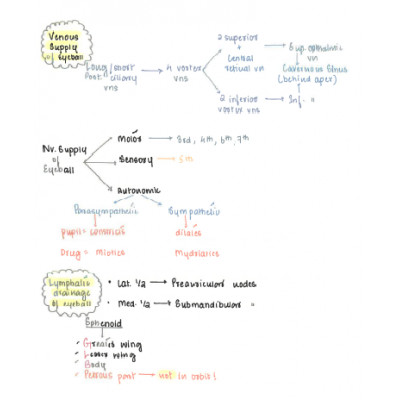 Venous
Supply
of Eyeball
Long/short
Post. ciliary
vns
4 vortex
vns
2 superior
+
Central
retinal vn
Sup. opthalmic
vn
Cavernous Sinus
(behind apex)
2 inferior
vortex vns
Inf. "
Nr. Supply
of
Eyeball
Motor → 3rd, 4th, 6th, 7th
Sensory → 5th
autonomic
Parasympathetic
Sympathetic
pupil = constricts
dilates
Drug = Miotics
Mydriatics
Lymphatic
drainage
of eyeball
• Lat. 1/2 → Preauricular nodes
• Med. 1/2 → Submandibular "
Sphenoid
✓ Greater wing
✓ Lesser wing
✓ Body
✓ Petrous part → not in orbit!